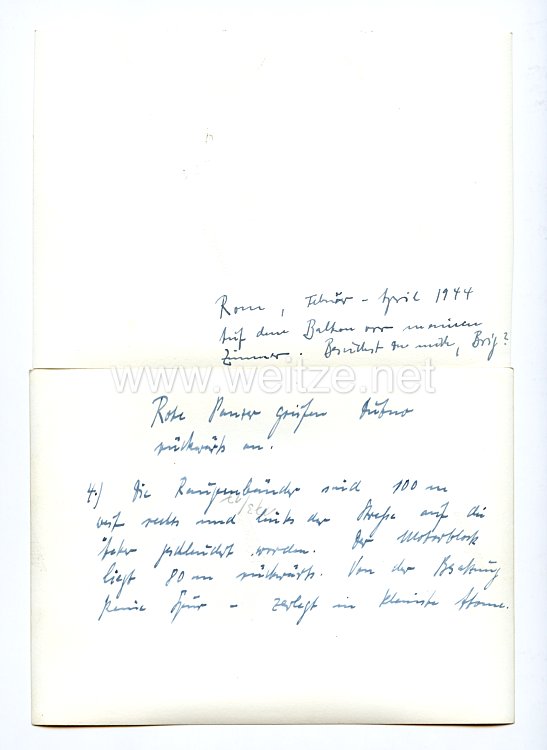 Rom, Februar - April 1944
Auf dem Balkon vor meinem
Zimmer. Besuchst du mich, Brig?
www.weitze.net
Rote Panzer greifen Dubno
rückwärts an.
4.) Die Raupenbänder sind 100 m
weit rechts und links der Straße auf die
Äcker geschleudert worden. Der Motorblock
liegt 80 m rückwärts. Von der Besatzung
keine Spur - zerlegt in kleinste Atome.